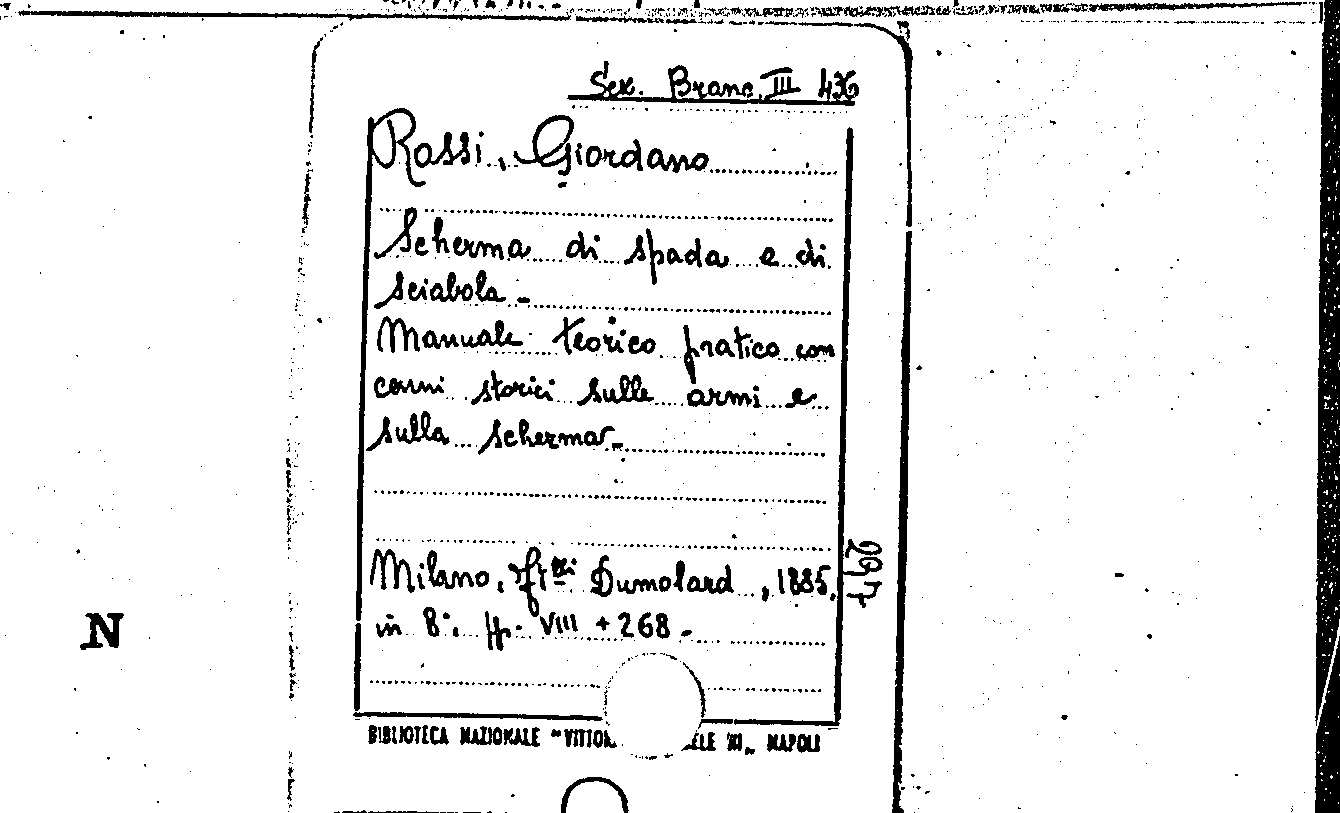 Sex. Branc. III 436
Rossi, Giordano
Scherma di spada e di
sciabola -
Manuale teorico pratico con
cenni storici sulle armi e
sulla scherma -
Milano, f.lli Dumolard, 1885,
in 8°. pp. VIII + 268 -
N
BIBLIOTECA NAZIONALE "VITTOR ELE III„ NAPOLI